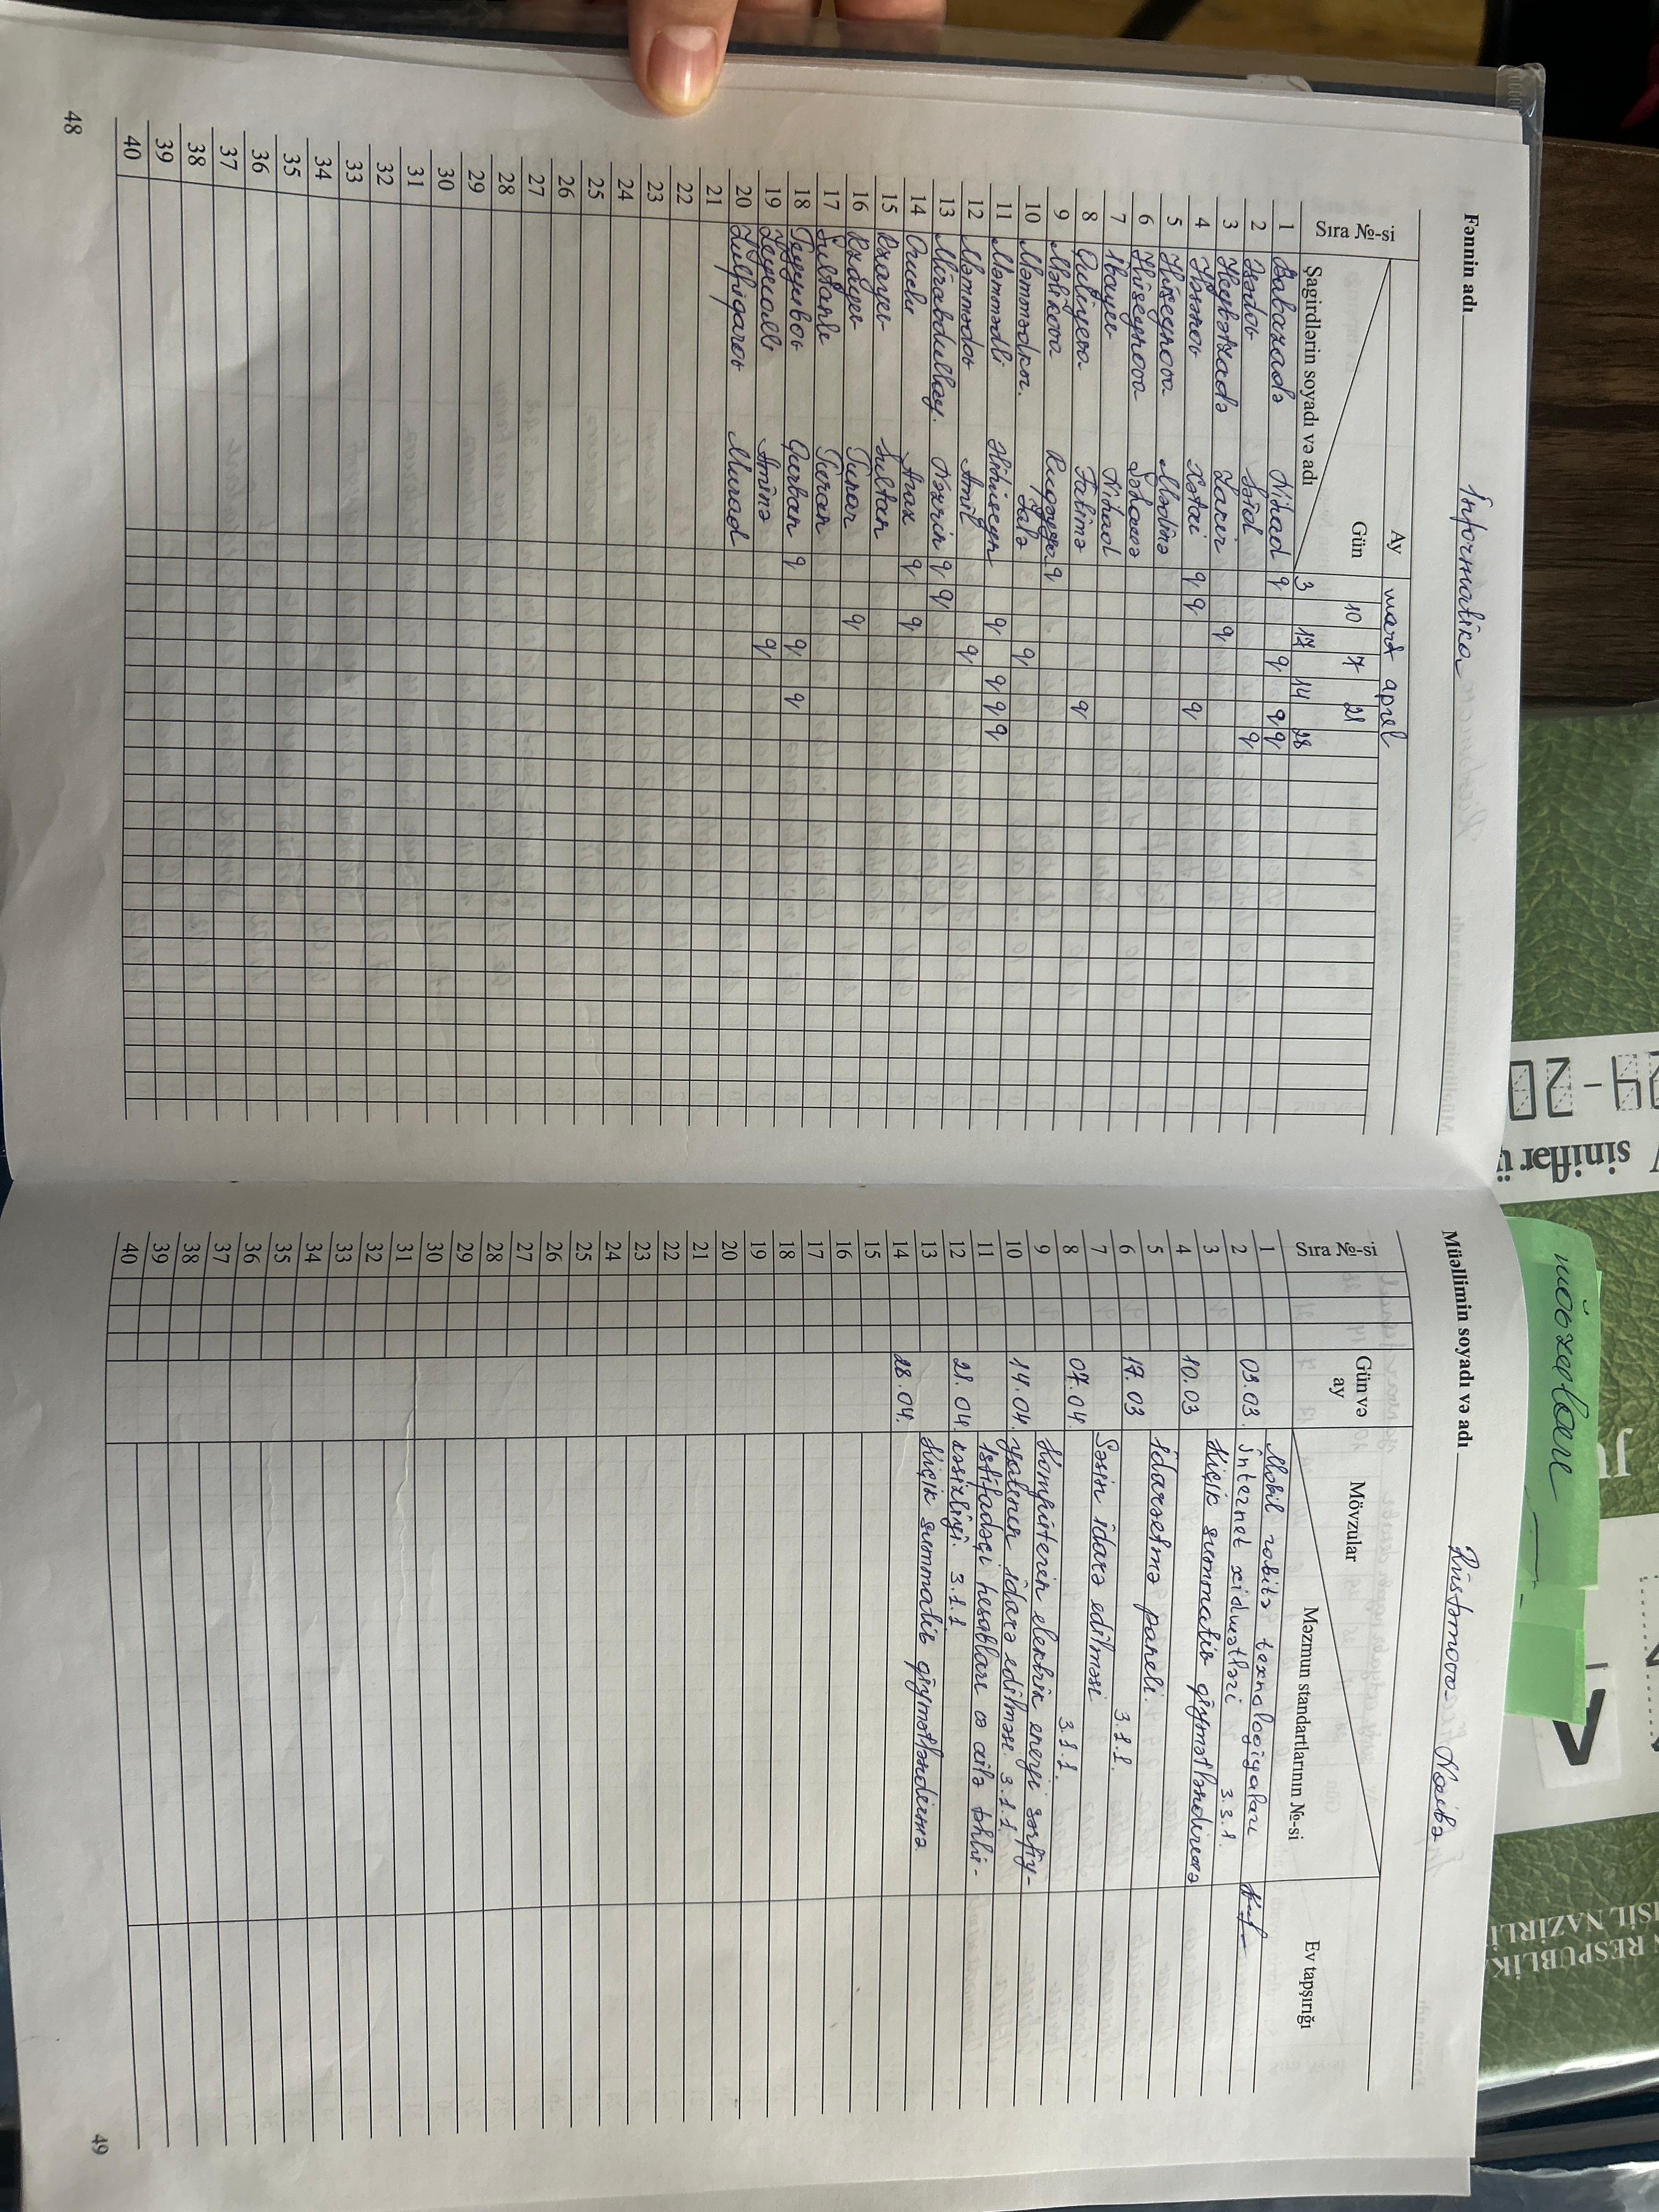 24-20
V siniflər ü
JU
V
N RESPUBLİK
HSİL NAZİRLİ
mövzuları
Fənnin adı İnformatika
Ay mart aprel
Gün 10 7 21
Sıra №-si
Şagirdlərin soyadı və adı 3 17 14 28
1 Babazadə Nihad q q q q
2 Əsədov Səid q
3 Heybətzadə Zakir q
4 Həsənov Xətai q q q
5 Hüseynova Mədinə
6 Hüseynova Şəhanə
7 İbayev Nihad
8 Quliyeva Fatimə q
9 Məlikova Ruqəyya q
10 Məmmədkər. Jalə q
11 Məmmədli Əlihüseyn q q q q
12 Məmmədov Amil q
13 Mirabdullay. Nəzrin q q
14 Oruclu Araz q q
15 Rzayev Sultan
16 Rzayev Tunar q
17 Sultanlı Turan
18 Təyyubov Qurban q q q
19 Zeynallı Aminə q
20 Zülfüqarov Murad
21
22
23
24
25
26
27
28
29
30
31
32
33
34
35
36
37
38
39
40
48
Müəllimin soyadı və adı Rüstəmova Naibə
Sıra №-si
Gün və ay
Mövzular
Məzmun standartlarının №-si
Ev tapşırığı
1 Mobil rabitə texnologiyaları
2 03.03. İnternet xidmətləri 3.3.1.
3 Kiçik summativ qiymətləndirmə
4 10.03
5 İdarəetmə paneli.
6 17.03 3.1.1.
7 Səsin idarə edilməsi
8 07.04. 3.1.1.
9 Kompüterin elektrik enerji sərfiy-
10 14.04. yatının idarə edilməsi. 3.1.1.
11 İstifadəçi hesabları və ailə təhlü-
12 21.04. kəsizliyi. 3.1.1.
13 Kiçik summativ qiymətləndirmə.
14 28.04.
15
16
17
18
19
20
21
22
23
24
25
26
27
28
29
30
31
32
33
34
35
36
37
38
39
40
49